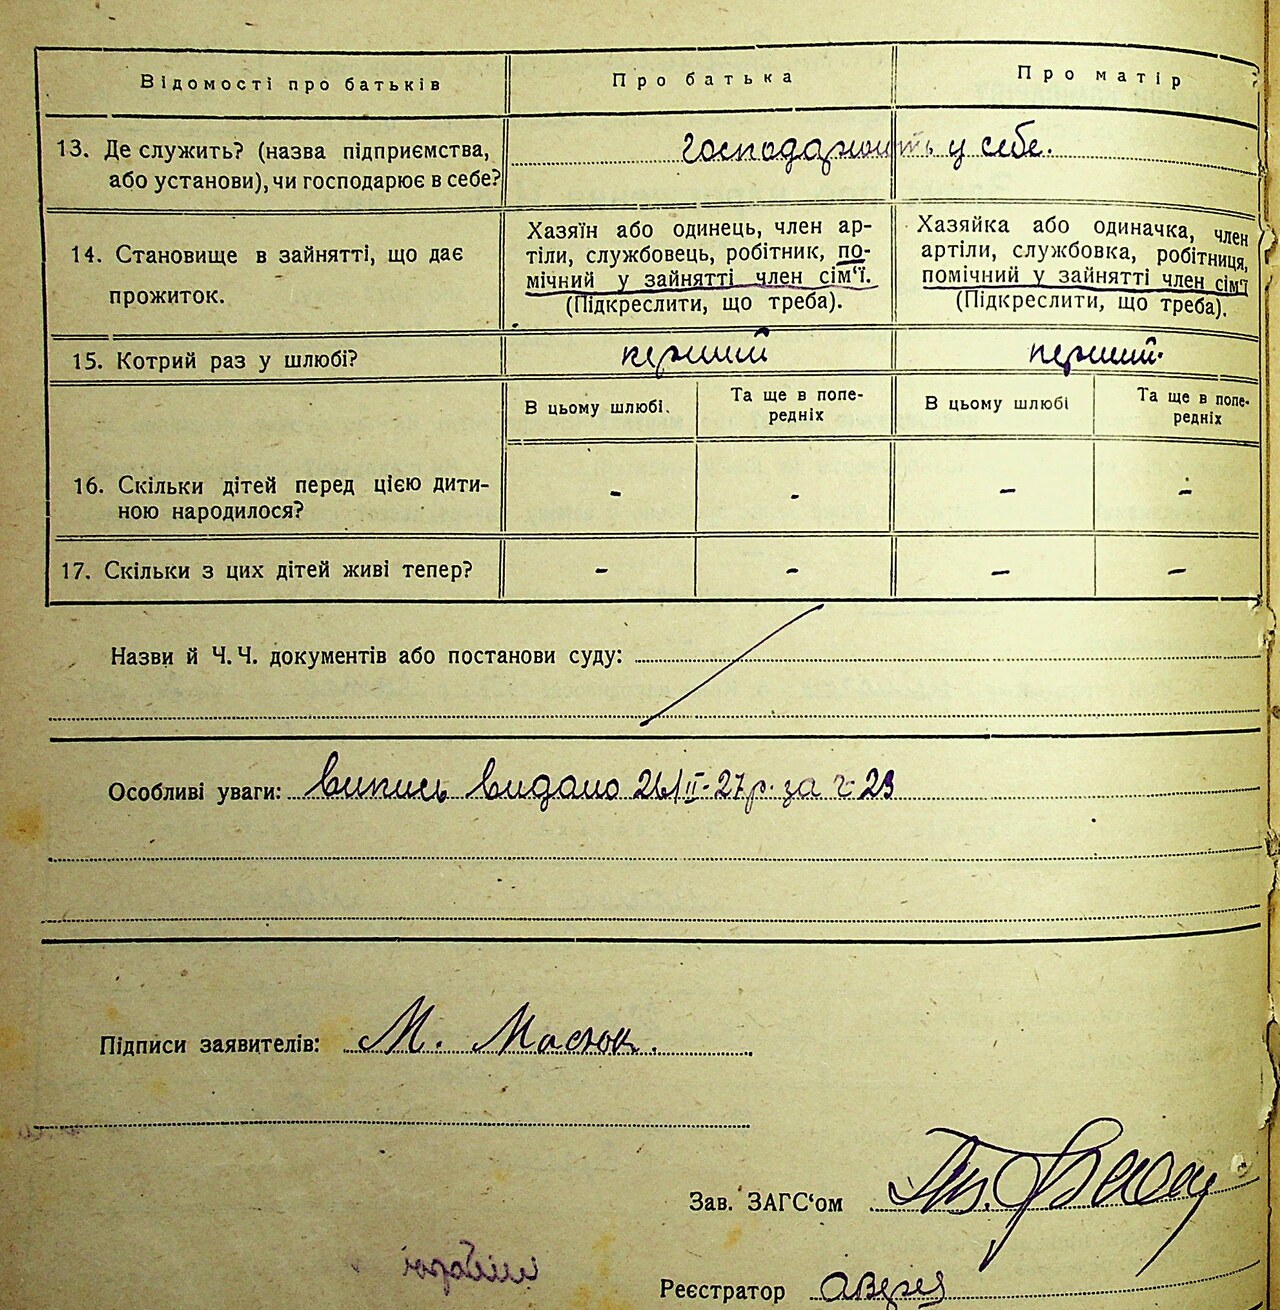 Відомості про батьків Про батька Про матір
13. Де служить? (назва підприємства, або установи), чи господарює в себе? господарюють у себе.
14. Становище в зайнятті, що дає прожиток.
Хазяїн або одинець, член ар-
тіли, службовець, робітник, по-
мічний у зайнятті член сім'ї.
(Підкреслити, що треба).
Хазяйка або одиначка, член
артіли, службовка, робітниця,
помічний у зайнятті член сім'ї
(Підкреслити, що треба).
15. Котрий раз у шлюбі? перший перший.
В цьому шлюбі. Та ще в попе-
редніх
В цьому шлюбі Та ще в попе-
редніх
16. Скільки дітей перед цією дити-
ною народилося? - - - -
17. Скільки з цих дітей живі тепер? - - - -
Назви й Ч.Ч. документів або постанови суду:
Особливі уваги: випись видано 26/II-27р. за ч. 23
Підписи заявителів: М. Масюк.
Зав. ЗАГС'ом
Реєстратор